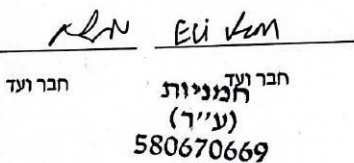 Eli
חבר ועד חבר ועד
חמניות
(ע''ר)
580670669